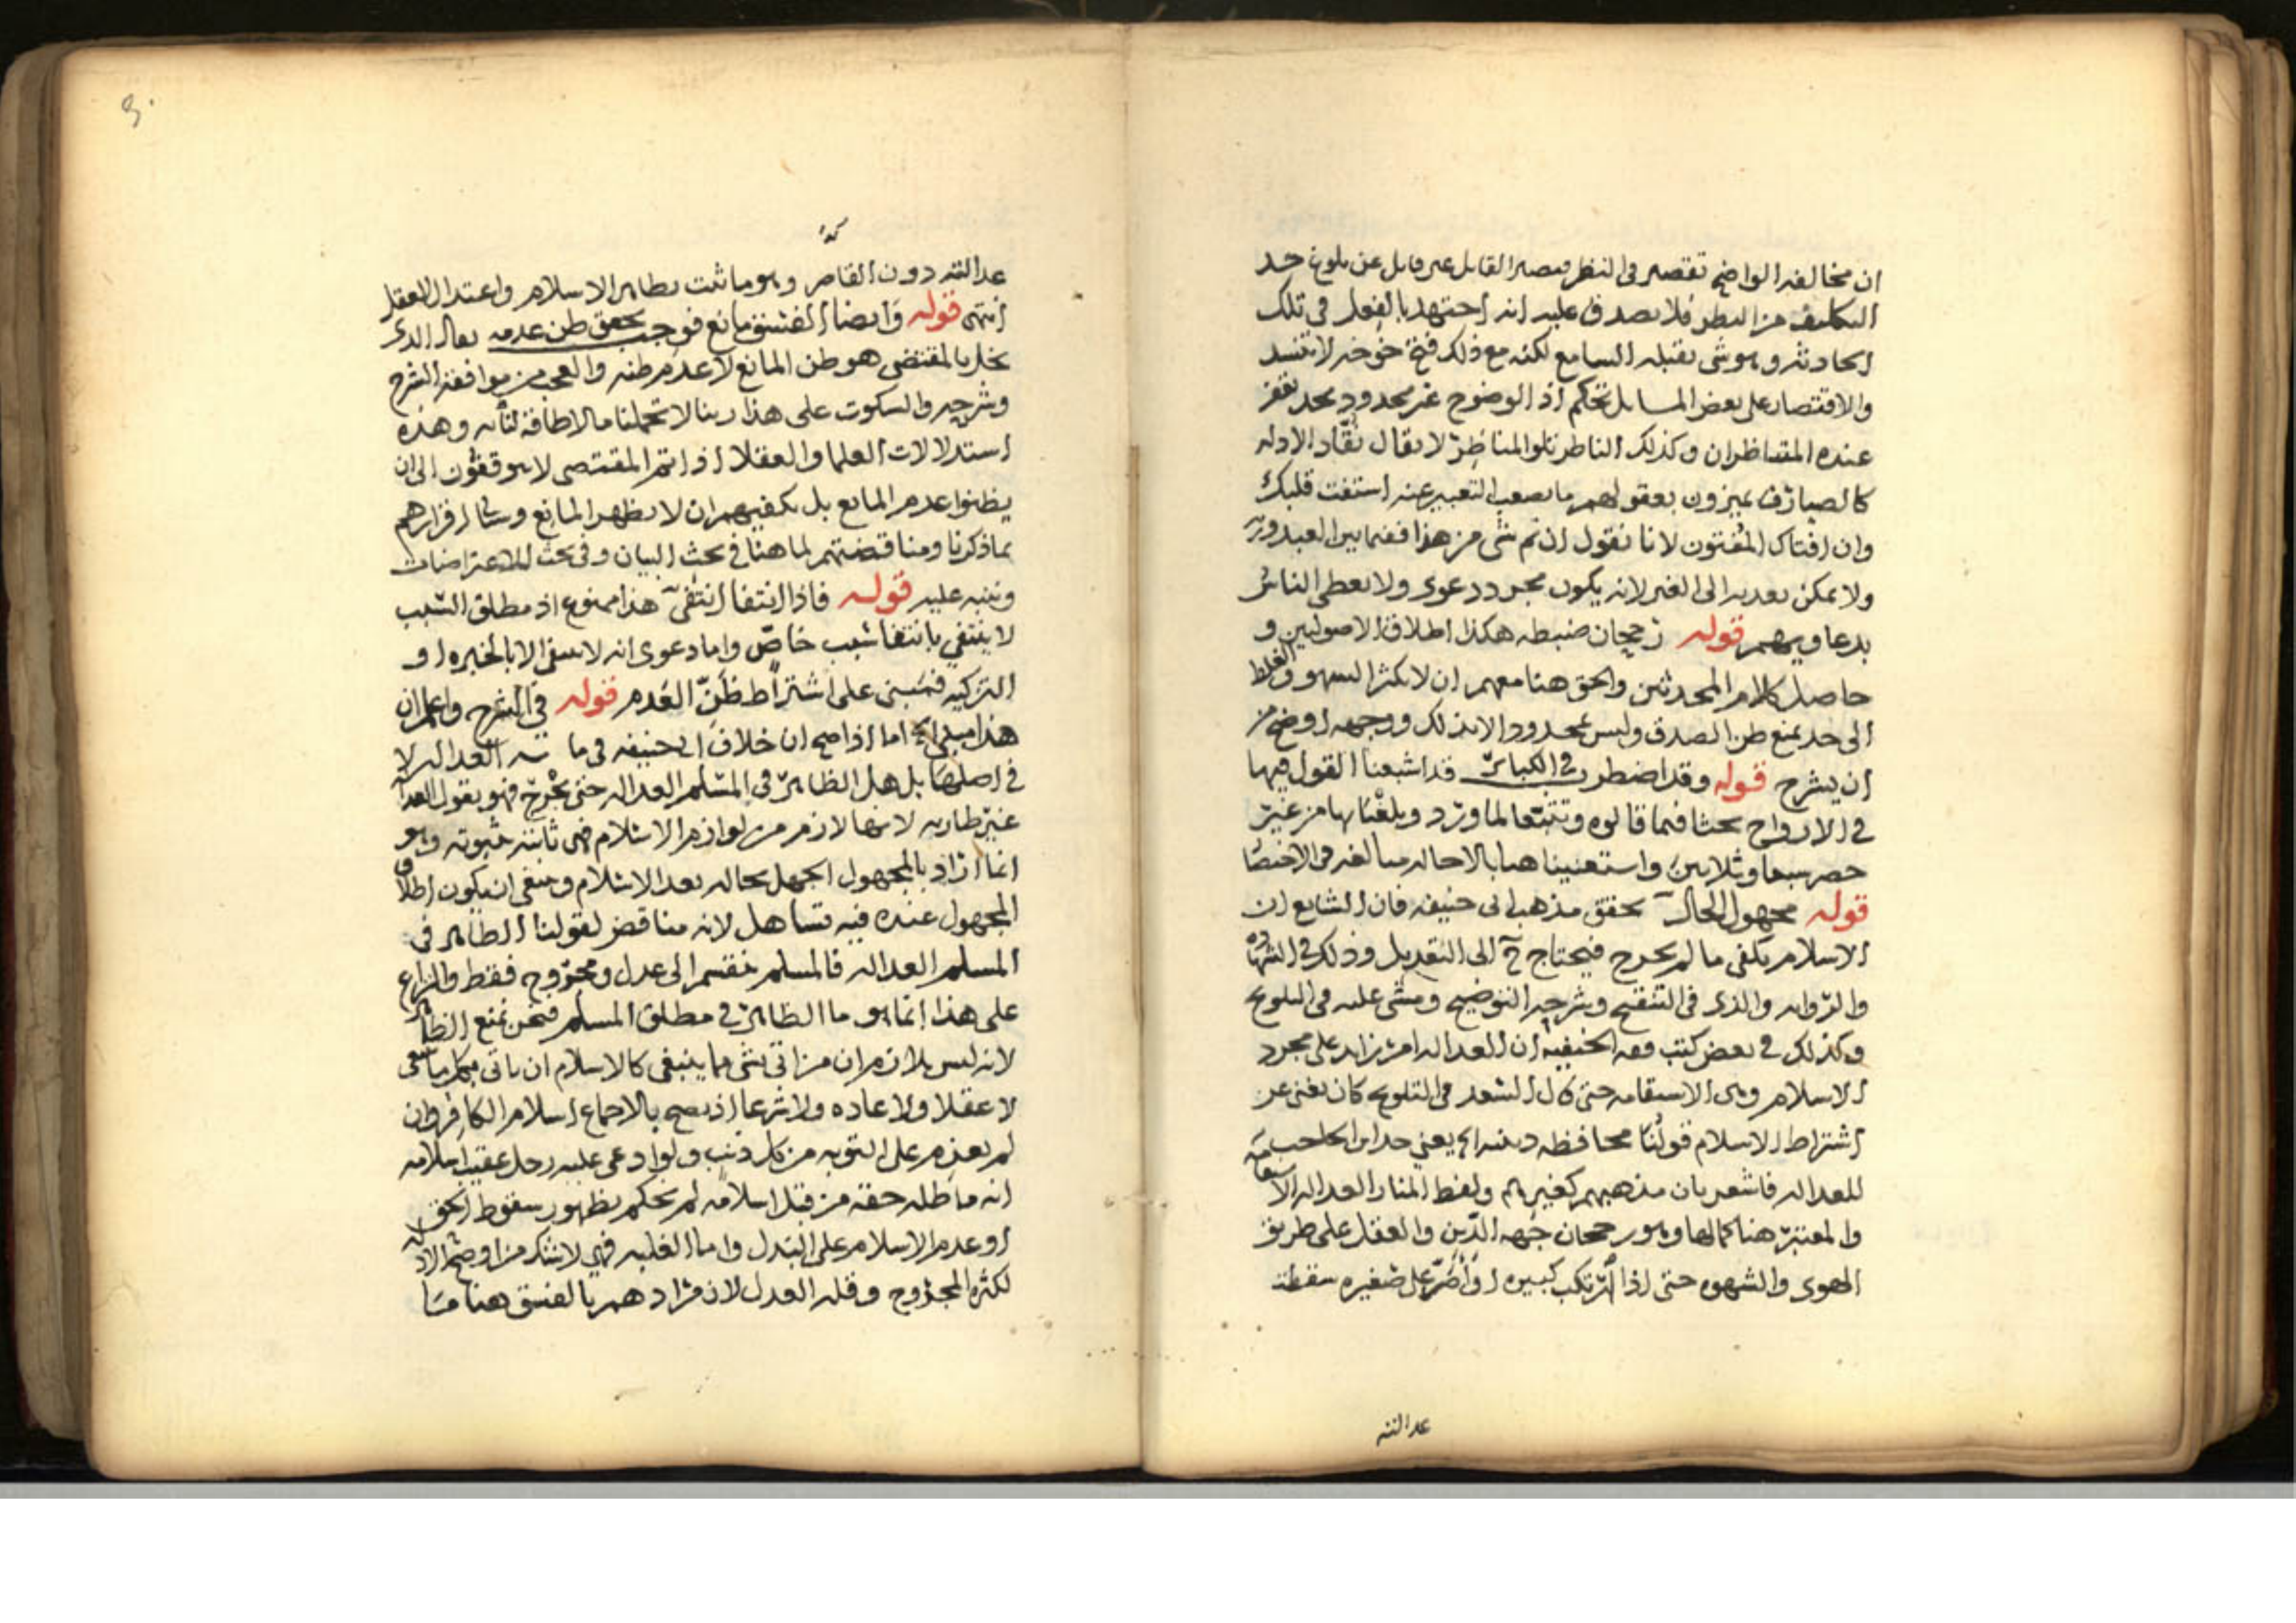 ان مخالفه الواضح تقصير في النظر فيصير القايل غير قايل عن بلوغ حد
التكليف من النظر فلا يصدق عليه انه اجتهد بالفعل في تلك
الحادثه وهو شي يقبله السامع لكنه مع ذلك فتح خوخه لا تنسد
والاقتصار على بعض المسايل تحكم اذ الوضوح غير محدود بحد يقف
عنده المتناظران وكذلك الناظر تلو المناظر لا يقال نقاد الادله
كالصيارف يميزون بعقولهم ما يصعب التعبير عنه استفت قلبك
وان افتاك المفتون لانا نقول ان تم شي من هذا ففيما بين العبد وربه
ولا يمكن تعديه الى الغير لانه يكون مجرد دعوى ولا يعطى الناس
بدعاويهم قوله رجحان ضبطه هكذا اطلاق الاصوليين و
حاصل كلام المحدثين والحق هنا معهم ان لا يكثر السهو والغلط
الى حد يمنع ظن الصدق وليس بمحدود الا بذلك ووجهه اوضح من
ان يشرح قوله وقد اضطرب في الكبائر قد اشبعنا القول فيها
في الارواح بحثا فيما قالوه وتتبعا لما ورد وبلغنا بها من غير
حصر سبعا وثلاثين واستغنينا هنا بالاحاله مبالغه في الاختصا
قوله مجهول الحال تحقق مذهب ابي حنيفه فان الشايع ان
الاسلام يكفي ما لم يجرح فيحتاج ح الى التعديل وذلك في الشهاده
والروايه والذى في التنقيح وشرحه التوضيح ومشى عليه في التلويح
وكذلك في بعض كتب فقه الحنفيه ان العداله امر زايد على مجرد
الاسلام وهى الاستقامه حتى قال السعد في التلويح كان يغنى عن
اشتراط الاسلام قولنا محافظه دينيه الخ يعني حد ابن الحاجب
للعداله فاشعر بان مذهبهم كغيرهم ولفظ المنار العداله الاستقامه
والمعتبر هنا كمالها وهو رجحان جهه الدين والعقل على طريق
الهوى والشهوه حتى اذا ارتكب كبيره او اصر على صغيره سقطت
عدالته
عدالته دون القاصر وهو ما ثبت بظاهر الاسلام واعتدال العقل
انتهى قوله وايضا الفسق مانع فوجب تحقق ظن عدمه يقال الذى
يخل بالمقتضى هو ظن المانع لا عدم ظنه والعجب من موافقه الشرح
وشرحه والسكوت على هذا ربنا لا تحملنا مالا طاقة لنا به وهذه
استدلالات العلما والعقلا اذا تم المقتضى لا يتوقفون الى ان
يظنوا عدم المانع بل يكفيهم ان لا يظهر المانع وسياتي اقرارهم
بما ذكرنا ومناقضتهم لما هنا في بحث البيان وفي بحث الاعتراضات
وننبه عليه قوله فاذا انتفا انتفى هذا ممنوع اذ مطلق السبب
لا ينتفي بانتفا سبب خاص واما دعوى انه لا ينتفى الا بالخبره او
التزكيه فمبني على اشتراط ظن العدم قوله في الشرح واعلم ان
هذا مبني الخ اما اذا صح ان خلاف ابي حنيفه في ما العداله لا
في اصلها بل هل الظاهر في المسلم العداله حتى يجرح فهو يقول العدا
غير طاريه لانها لازم من لوازم الاسلام فهي ثابته بثبوته وهو
انما اراد بالمجهول الجهل بحاله بعد الاسلام وينبغي ان يكون اطلاق
المجهول عنده فيه تساهل لانه مناقض لقولنا الظاهر في
المسلم العداله فالمسلم ينقسم الى عدل ومجروح فقط والنزاع
على هذا انما هو ما الظاهر في مطلق المسلم فنحن نمنع الظا
لانه ليس بلازم ان من اتى بشي مما ينبغي كالاسلام ان ياتى بكل ما ينبغى
لا عقلا ولا عاده ولا شرعا اذ يصح بالاجماع اسلام الكافر وان
لم يعزم على التوبه من كل ذنب ولو ادعى عليه رجل عقيب اسلامه
انه ماطله حقه من قبل اسلامه لم نحكم بظهور سقوط الحق
او عدم الاسلام على البدل واما الغلبه فهي لا شك من اوضح الادله
لكثره المجروح وقله العدل لان مرادهم بالفسق هنا ما